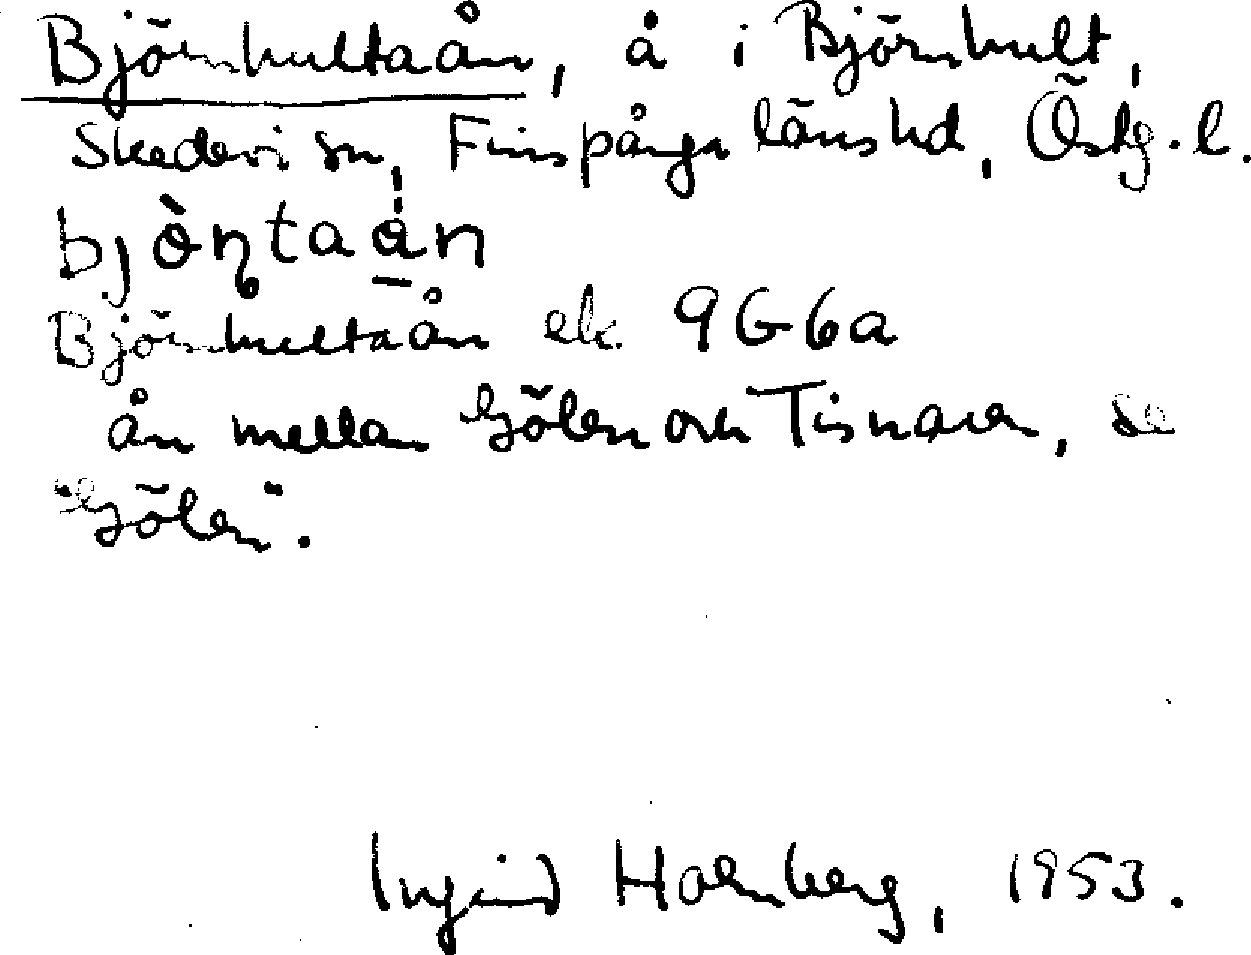 Björnhultaån, å i Björnhult,
Skedevi sn, Finspånga länshd, Östg. l.
bjö̀ɳtaån
Björnhultaån ek 9G6a
ån mellan Gölen och Tisnaren, se
"Gölen".
Ingrid Holmberg, 1953.